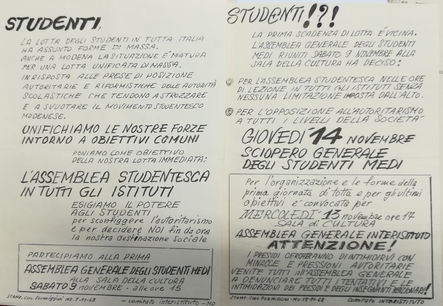 STUDENTI,
LA LOTTA DEGLI STUDENTI IN TUTTA ITALIA
HA ASSUNTO FORME DI MASSA.
ANCHE A MODENA LA SITUAZIONE È MATURA
PER UNA LOTTA UNIFICATA DI MASSA.
IN RISPOSTA ALLE PRESE DI POSIZIONE
AUTORITARIE E RIFORMISTICHE DELLE AUTORITÀ
SCOLASTICHE CHE TENDONO A STROZZARE
E A SVUOTARE IL MOVIMENTO STUDENTESCO
MODENESE.
UNIFICHIAMO LE NOSTRE FORZE
INTORNO A OBIETTIVI COMUNI
PONIAMO COME OBIETTIVO
DELLA NOSTRA LOTTA IMMEDIATA:
L'ASSEMBLEA STUDENTESCA
IN TUTTI GLI ISTITUTI
ESIGIAMO IL POTERE
AGLI STUDENTI
per sconfiggere l'autoritarismo
e per decidere NOI fin da ora
la nostra destinazione sociale
PARTECIPIAMO ALLA PRIMA
ASSEMBLEA GENERALE DEGLI STUDENTI MEDI
ALLA SALA DELLA CULTURA
SABATO 9 NOVEMBRE - alle ore 15
Comitato interistituto - MO
STUDENTI!?!
LA PRIMA SCADENZA DI LOTTA È VICINA.
L'ASSEMBLEA GENERALE DEGLI STUDENTI
MEDI RIUNITI SABATO 9 NOVEMBRE ALLA
SALA DELLA CULTURA HA DECISO:
PER L'ASSEMBLEA STUDENTESCA NELLE ORE
DI LEZIONE IN TUTTI GLI ISTITUTI SENZA
NESSUNA LIMITAZIONE IMPOSTA DALL'ALTO.
PER L'OPPOSIZIONE ALL'AUTORITARISMO
A TUTTI I LIVELLI DELLA SOCIETÀ
GIOVEDÌ 14 NOVEMBRE
SCIOPERO GENERALE
DEGLI STUDENTI MEDI
Per l'organizzazione e le forme della
prima giornata di lotta e per gli ultimi
obiettivi è convocata per
MERCOLEDÌ 13 novembre ore 17
SALA di CULTURA
ASSEMBLEA GENERALE INTERISTITUTO
ATTENZIONE!
I PRESIDI CERCHERANNO DI INTIMIDIRVI CON
MINACCE E PRESSIONI AUTORITARIE
VENITE TUTTI ALL'ASSEMBLEA GENERALE
A DENUNCIARE TUTTI I TENTATIVI DI
INTIMIDAZIONE DEI PRESIDI NEGLI
COMITATO INTERISTITUTO